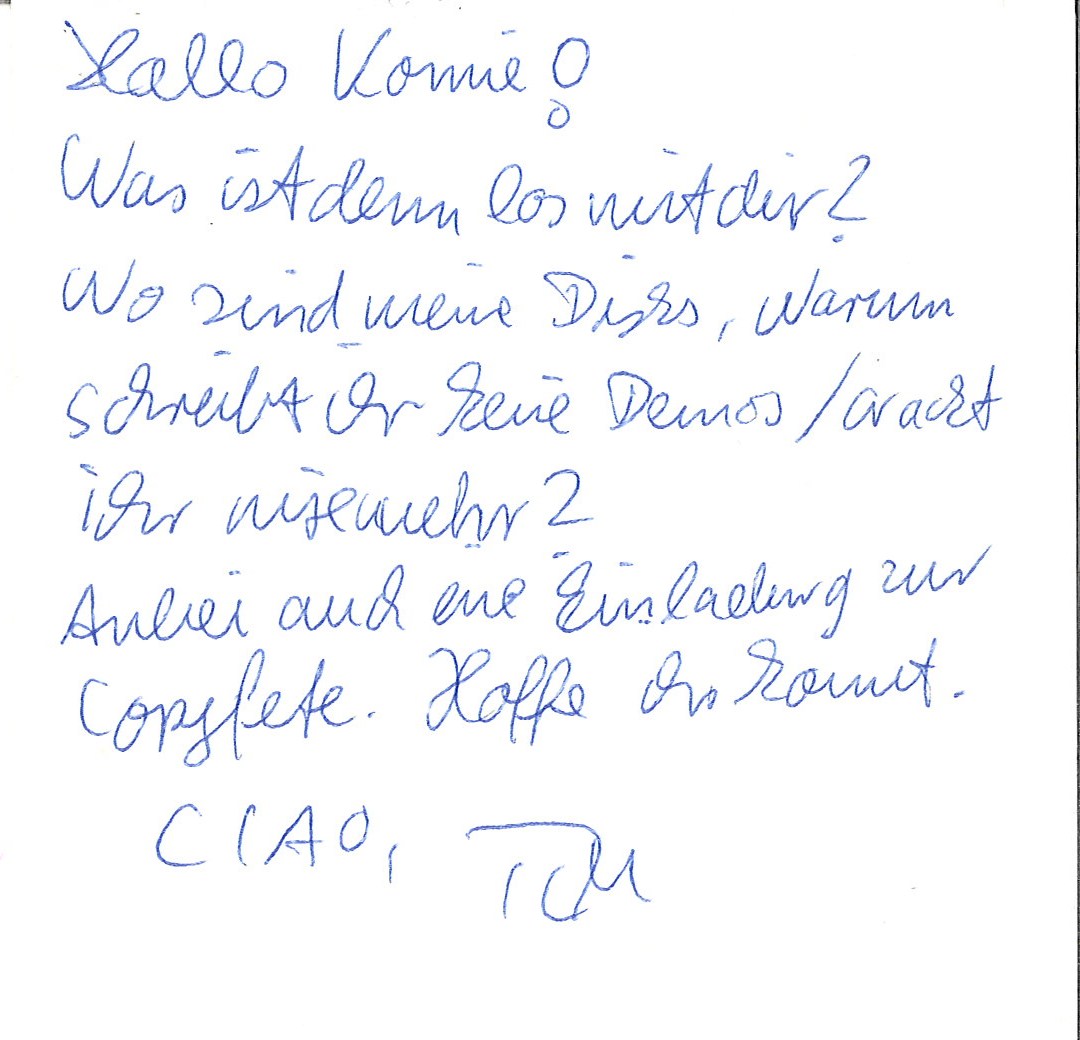 Hallo Konnie!
Was ist denn los mit dir?
Wo sind meine Disks, warum
schreibt ihr keine Demos / crackt
ihr nix mehr?
Anbei auch eine Einladung zur
Copyfete. Hoffe ihr kommt.
CIAO, TOM